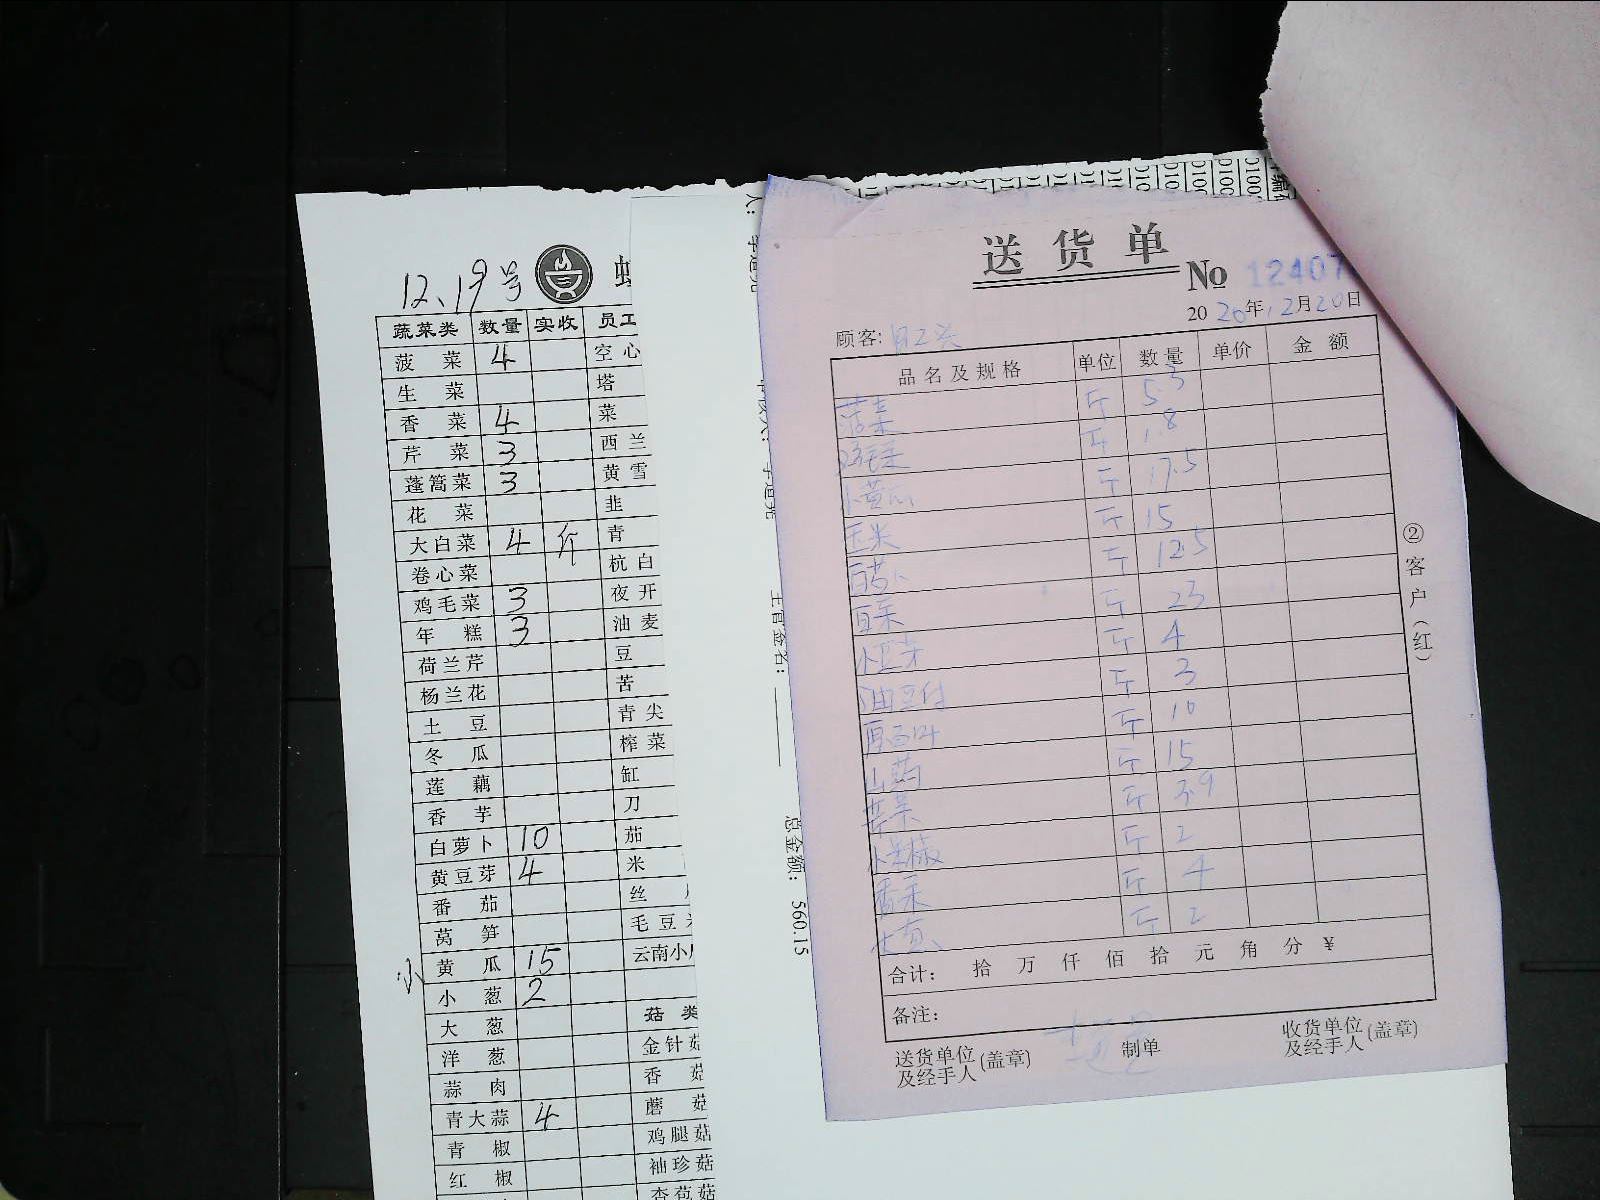 12、19号
蔬菜类 数量 实收 员工
菠菜 4 空心
生菜 塔
香菜 4 菜
芹菜 3 西兰
蓬篙菜 3 黄雪
花菜 韭
大白菜 4 斤 青
卷心菜 杭白
鸡毛菜 3 夜开
年糕 3 油麦
荷兰芹 豆
杨兰花 苦
土豆 青尖
冬瓜 榨菜
莲藕 缸
香芋 刀
白萝卜 10 茄
黄豆芽 4 米
番茄 丝
莴笋 毛豆
小 黄瓜 15 云南小
小葱 2
大葱 菇类
洋葱 金针菇
蒜肉 香菇
青大蒜 4 蘑菇
青椒 鸡腿菇
红椒 袖珍菇
杏苞菇
主管签名:
总金额: 560.15
送货单
No 12407
2020年12月20日
顾客:
品名及规格 单位 数量 单价 金额
菠菜 斤 5.3
鸡毛菜 斤 1.8
小黄瓜 斤 17.5
玉米 斤 15
白萝卜 斤 12.5
白菜 斤 23
小豆芽 斤 4
油豆付 斤 3
厚百叶 斤 10
山药 斤 15
芹菜 斤 3.9
小尖椒 斤 2
香菜 斤 4
斤 2
合计: 拾 万 仟 佰 拾 元 角 分 ¥
备注:
送货单位及经手人(盖章) 制单 收货单位及经手人(盖章)
②客户(红)